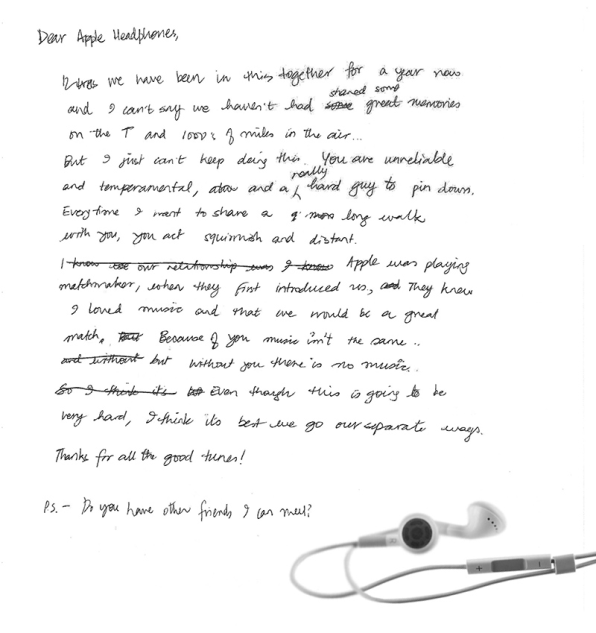 Dear Apple Headphones,
we have been in this together for a year now
and I can't say we haven't had shared some great memories
on the T and 1000's of miles in the air...
But I just can't keep doing this. You are unreliable
and temperamental, and a really hard guy to pin down.
Everytime I want to share a long walk
with you, you act squirmish and distant.
I know our relationship was I know Apple was playing
matchmaker, when they first introduced us, and They knew
I loved music and that we would be a great
match. Because of you music isn't the same..
and without but without you there is no music.
So I think its Even though this is going to be
very hard, I think its best we go our separate ways.
Thanks for all the good tunes!
P.S. – Do you have other friends I can meet?
+
-